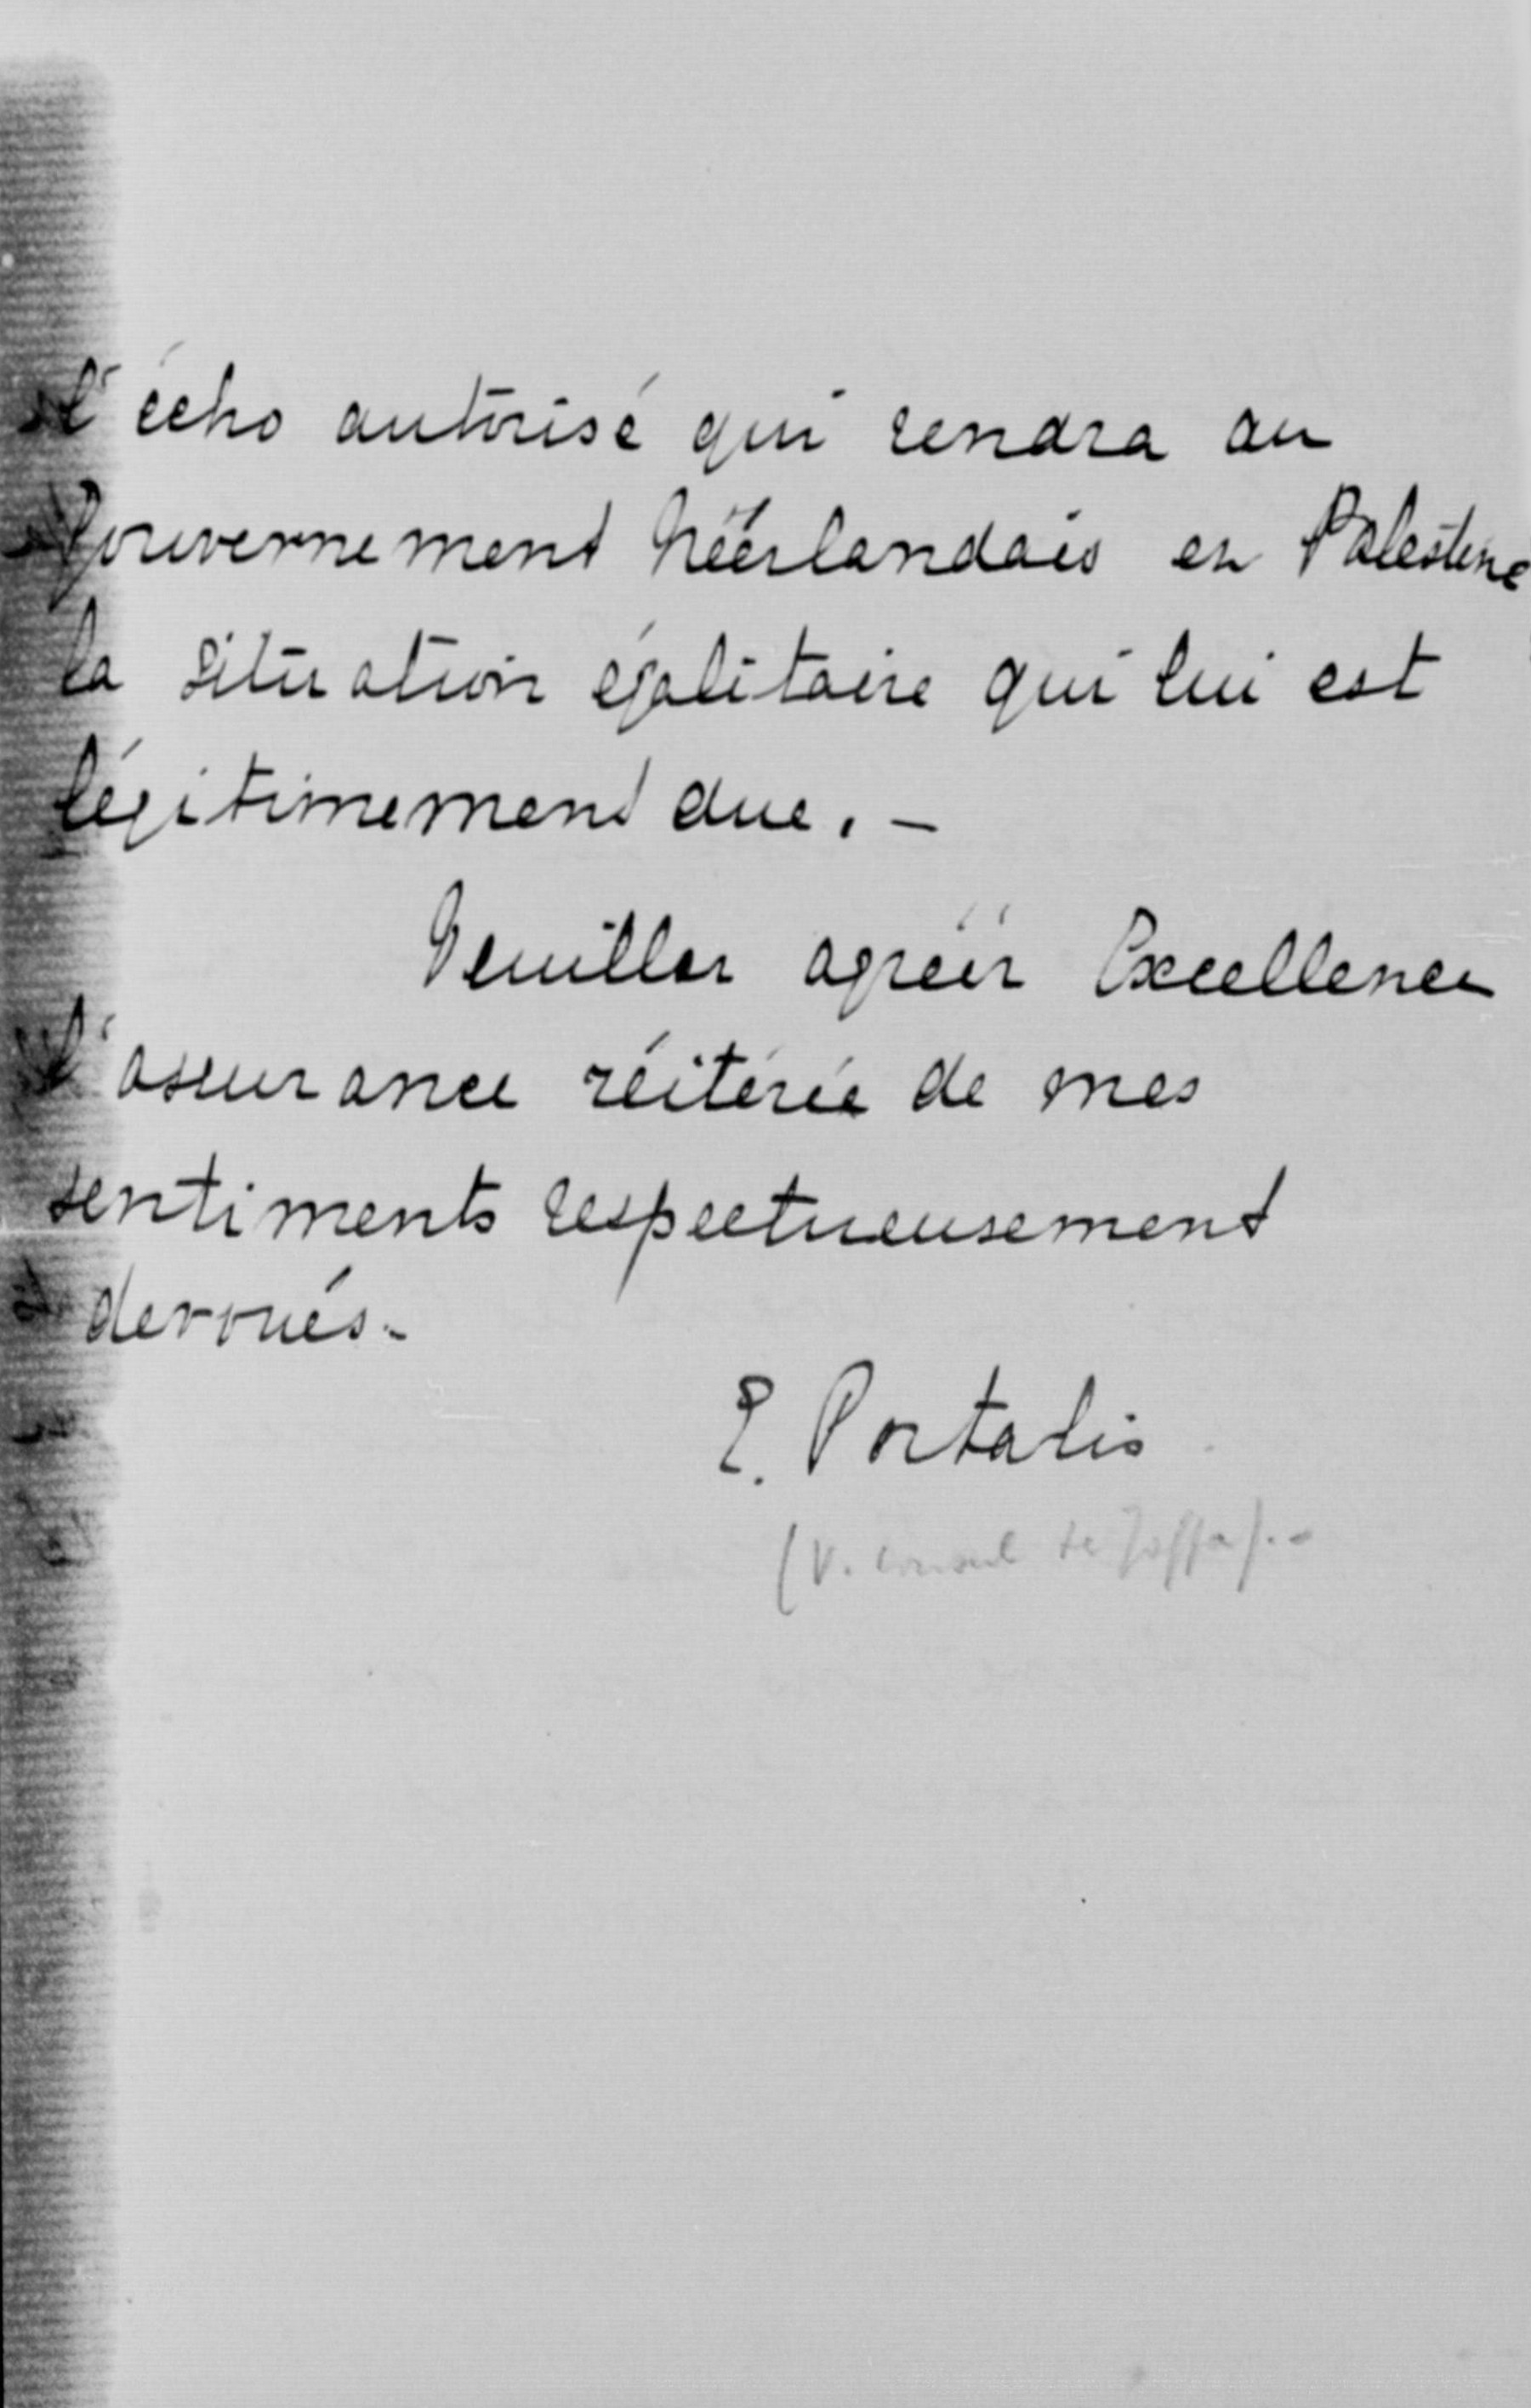 l'écho autorisé qui rendra au
Gouvernement Néérlandais en Palestine
la situation égalitaire qui lui est
légitimement due. –
Veuillez agréér Excellence
l'assurance réitérée de mes
sentiments respectueusement
dévoués. –
E. Portalis
(V. Consul de Jaffa). –